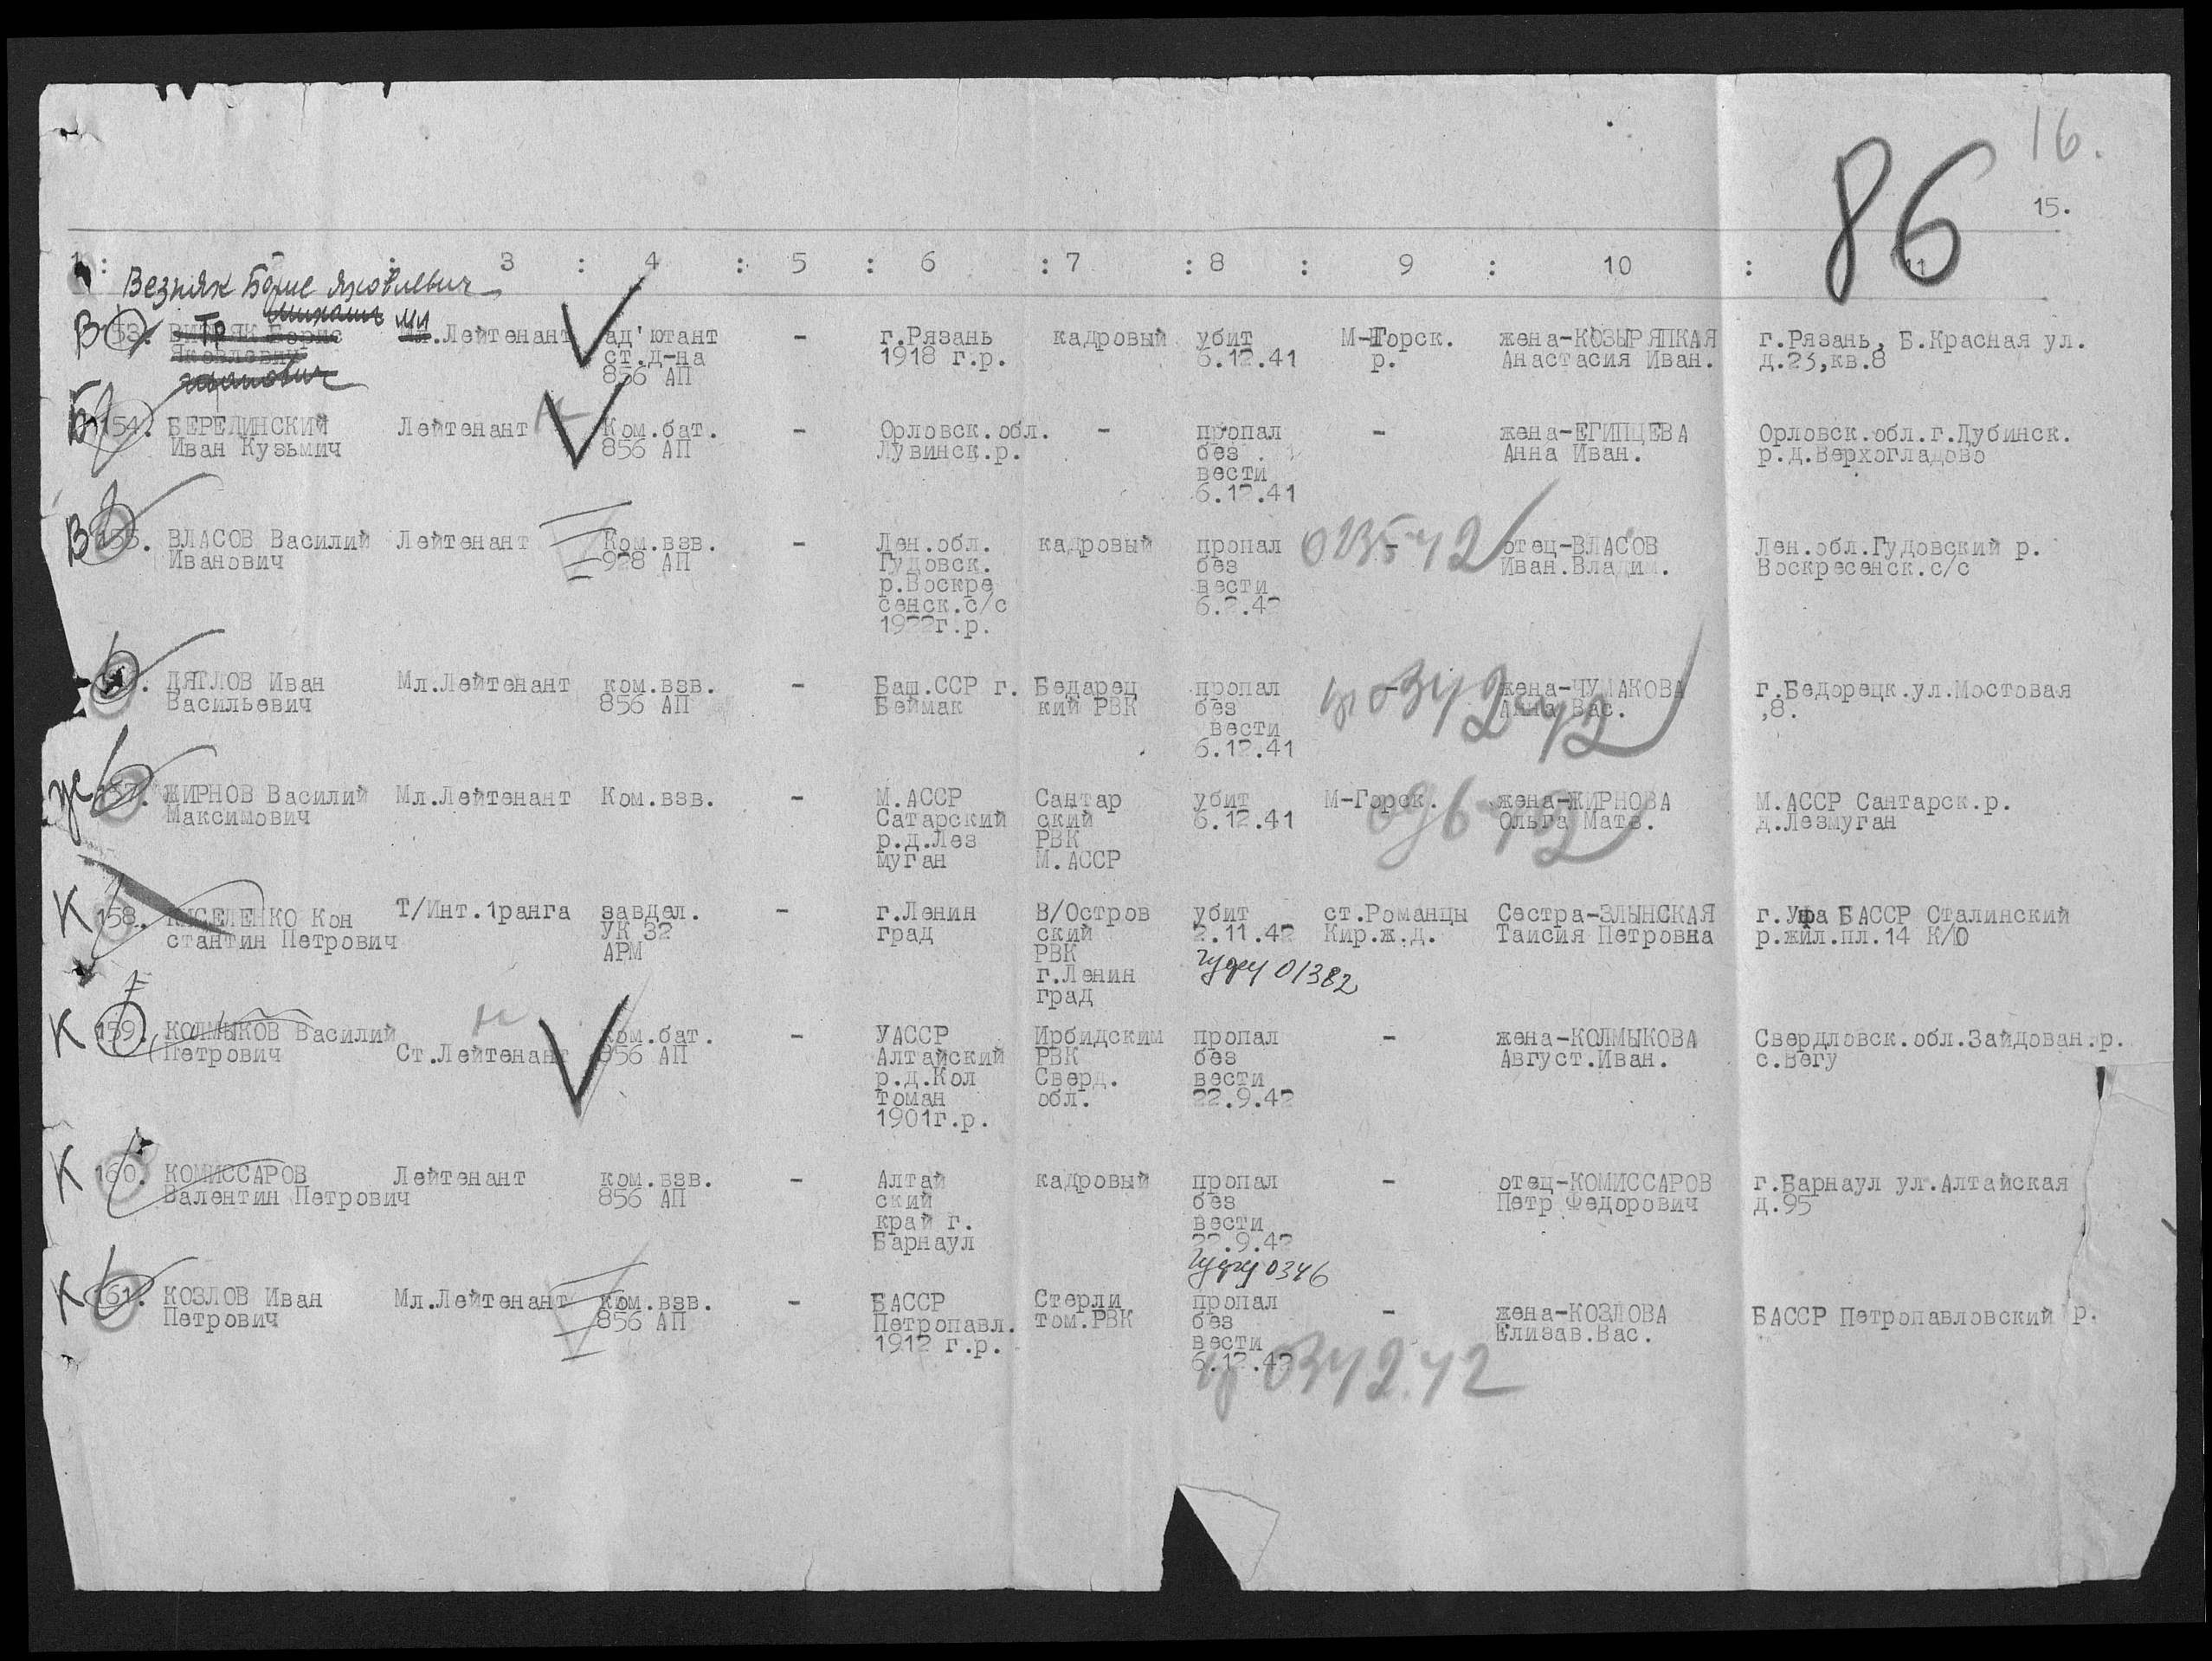 16.
86
15.
1 : : 3 : 4 : 5 : 6 : 7 : 8 : 9 : 10 : 11
Везняк Борис Яковлевич
В 153. Борис Мл.Лейтенант ад'ютант - г.Рязань кадровый убит М-Горск. жена-КОЗЫРЯПКАЯ г.Рязань, Б.Красная ул.
Яковлевич ст.д-на 1918 г.р. 6.12.41 р. Анастасия Иван. д.23,кв.8
856 АП
Б 154. БЕРЕДИНСКИЙ Лейтенант Ком.бат. - Орловск.обл. - пропал - жена-ЕГИПЦЕВА Орловск.обл.г.Дубинск.
Иван Кузьмич 856 АП Лувинск.р. без Анна Иван. р.д.Верхогладово
вести
6.12.41
В 155. ВЛАСОВ Василий Лейтенант Ком.взв. - Лен.обл. кадровый пропал - отец-ВЛАСОВ Лен.обл.Гудовский р.
Иванович 928 АП Гудовск. без Иван.Владим. Воскресенск.с/с
р.Воскре вести
сенск.с/с 6.2.42
1922г.р.
ДЯТЛОВ Иван Мл.Лейтенант ком.взв. - Баш.ССР г. Бедарец пропал - жена-ЧУМАКОВА г.Бедорецк.ул.Мостовая
Васильевич 856 АП Беймак кий РВК без Анна Вас. ,8.
вести
6.12.41
Ж 157. ЖИРНОВ Василий Мл.Лейтенант Ком.взв. - М.АССР Сантар убит М-Горск. жена-ЖИРНОВА М.АССР Сантарск.р.
Максимович Сатарский ский 6.12.41 Ольга Матв. д.Лезмуган
р.д.Лез РВК
муган М.АССР
К 158. КИСЕЛЕНКО Кон Т/Инт.1ранга завдел. - г.Ленин В/Остров убит ст.Романцы Сестра-ЗЛЫНСКАЯ г.Уфа БАССР Сталинский
стантин Петрович УК 32 град ский 2.11.42 Кир.ж.д. Таисия Петровна р.жил.пл.14 К/Ю
АРМ РВК
г.Ленин 01382
град
К 159. КОЛМЫКОВ Василий ком.бат. - УАССР Ирбидским пропал - жена-КОЛМЫКОВА Свердловск.обл.Зайдован.р.
Петрович Ст.Лейтенант 856 АП Алтайский РВК без Август.Иван. с.Вегу
р.д.Кол Сверд. вести
томан обл. 22.9.42
1901г.р.
К 160. КОМИССАРОВ Лейтенант ком.взв. - Алтай кадровый пропал - отец-КОМИССАРОВ г.Барнаул ул.Алтайская
Валентин Петрович 856 АП ский без Петр Федорович д.95
край г. вести
Барнаул 22.9.42
0346
К 161. КОЗЛОВ Иван Мл.Лейтенант ком.взв. - БАССР Стерли пропал - жена-КОЗЛОВА БАССР Петропавловский р.
Петрович 856 АП Петропавл. том.РВК без Елизав.Вас.
1912 г.р. вести
6.12.42